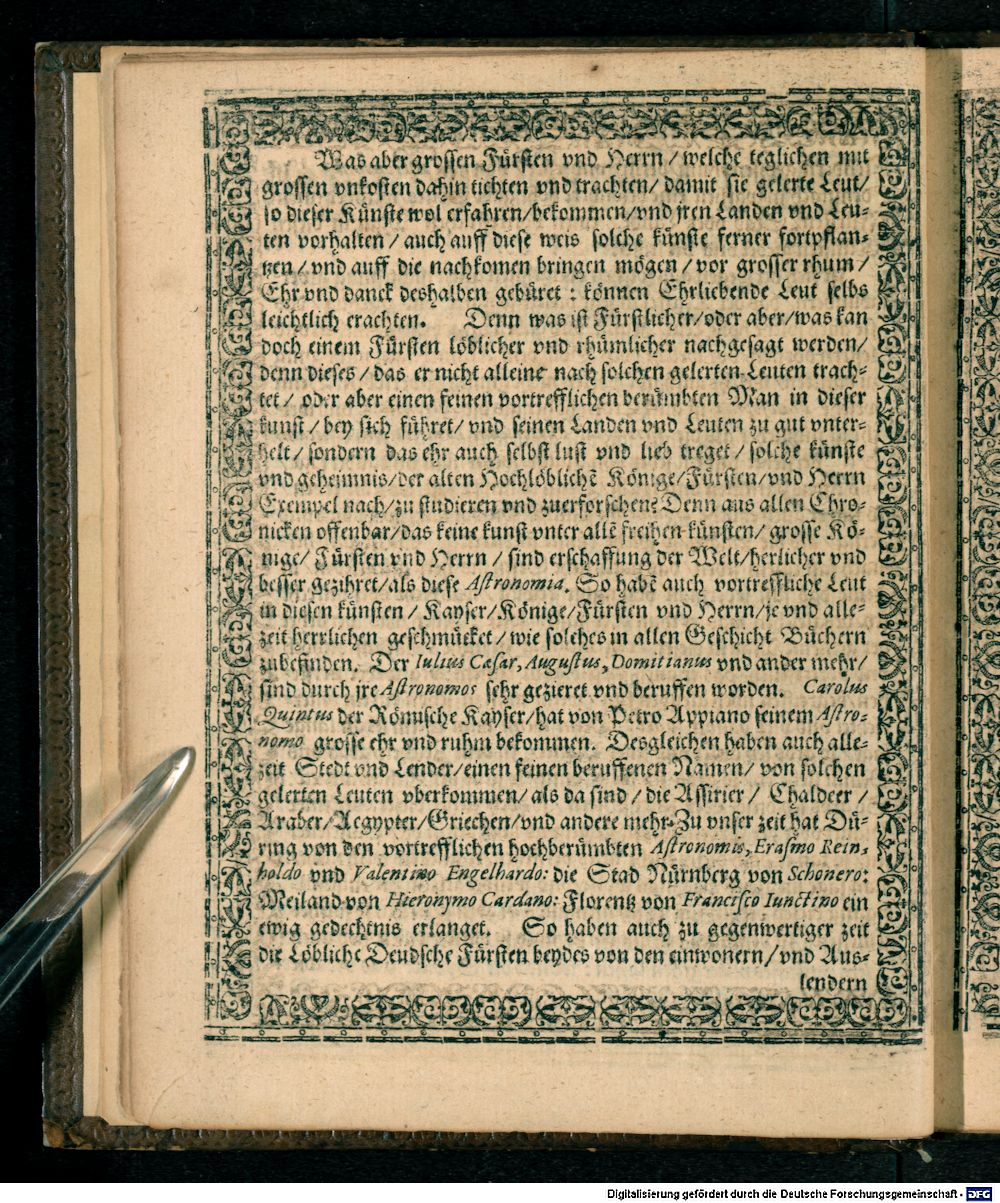 Was aber grossen Fürsten vnd Herrn / welche teglichen mit
grossen vnkosten dahin tichten vnd trachten / damit sie gelerte Leut /
so dieser Künste wol erfahren / bekommen / vnd jren Landen vnd Leu-
ten vorhalten / auch auff diese weis solche künste ferner fortpflan-
tzen / vnd auff die nachkomen bringen mögen / vor grosser rhum /
Ehr vnd danck deshalben gebüret : können Ehrliebende Leut selbs
leichtlich erachten. Denn was ist Fürstlicher / oder aber / was kan
doch einem Fürsten löblicher vnd rhümlicher nachgesagt werden /
denn dieses / das er nicht alleine nach solchen gelerten Leuten trach-
tet / oder aber einen feinen vortrefflichen berümbten Man in dieser
kunst / bey sich führet / vnd seinen Landen vnd Leuten zu gut vnter-
helt / sondern das ehr auch selbst lust vnd lieb treget / solche künste
vnd geheimnis / der alten Hochlöblichē Könige / Fürsten / vnd Herrn
Exempel nach / zu studieren vnd zuerforschen? Denn aus allen Chro-
nicken offenbar / das keine kunst vnter allē freihen künsten / grosse Kö-
nige / Fürsten vnd Herrn / sind erschaffung der Welt / herlicher vnd
besser gezihret / als diese Astronomia. So habē auch vortreffliche Leut
in diesen künsten / Kayser / Könige / Fürsten vnd Herrn / je vnd alle-
zeit herrlichen geschmücket / wie solches in allen Geschicht Büchern
zubefinden. Der Iulius Cæsar, Augustus, Domitianus vnd ander mehr /
sind durch jre Astronomos sehr gezieret vnd beruffen worden. Carolus
Quintus der Römische Kayser / hat von Petro Appiano seinem Astro-
nomo grosse ehr vnd ruhm bekommen. Desgleichen haben auch alle-
zeit Stedt vnd Lender / einen feinen beruffenen Namen / von solchen
gelerten Leuten vberkommen / als da sind / die Assirier / Chaldeer /
Araber / Aegypter / Griechen / vnd andere mehr. Zu vnser zeit hat Dü-
ring von den vortrefflichen hochberümbten Astronomis, Erasmo Rein-
holdo vnd Valentino Engelhardo: die Stad Nürnberg von Schonero:
Meiland von Hieronymo Cardano: Florentz von Francisco Iunctino ein
ewig gedechtnis erlanget. So haben auch zu gegenwertiger zeit
die Löbliche Deudsche Fürsten beydes von den einwonern / vnd Aus-
lendern
Digitalisierung gefördert durch die Deutsche Forschungsgemeinschaft - DFG